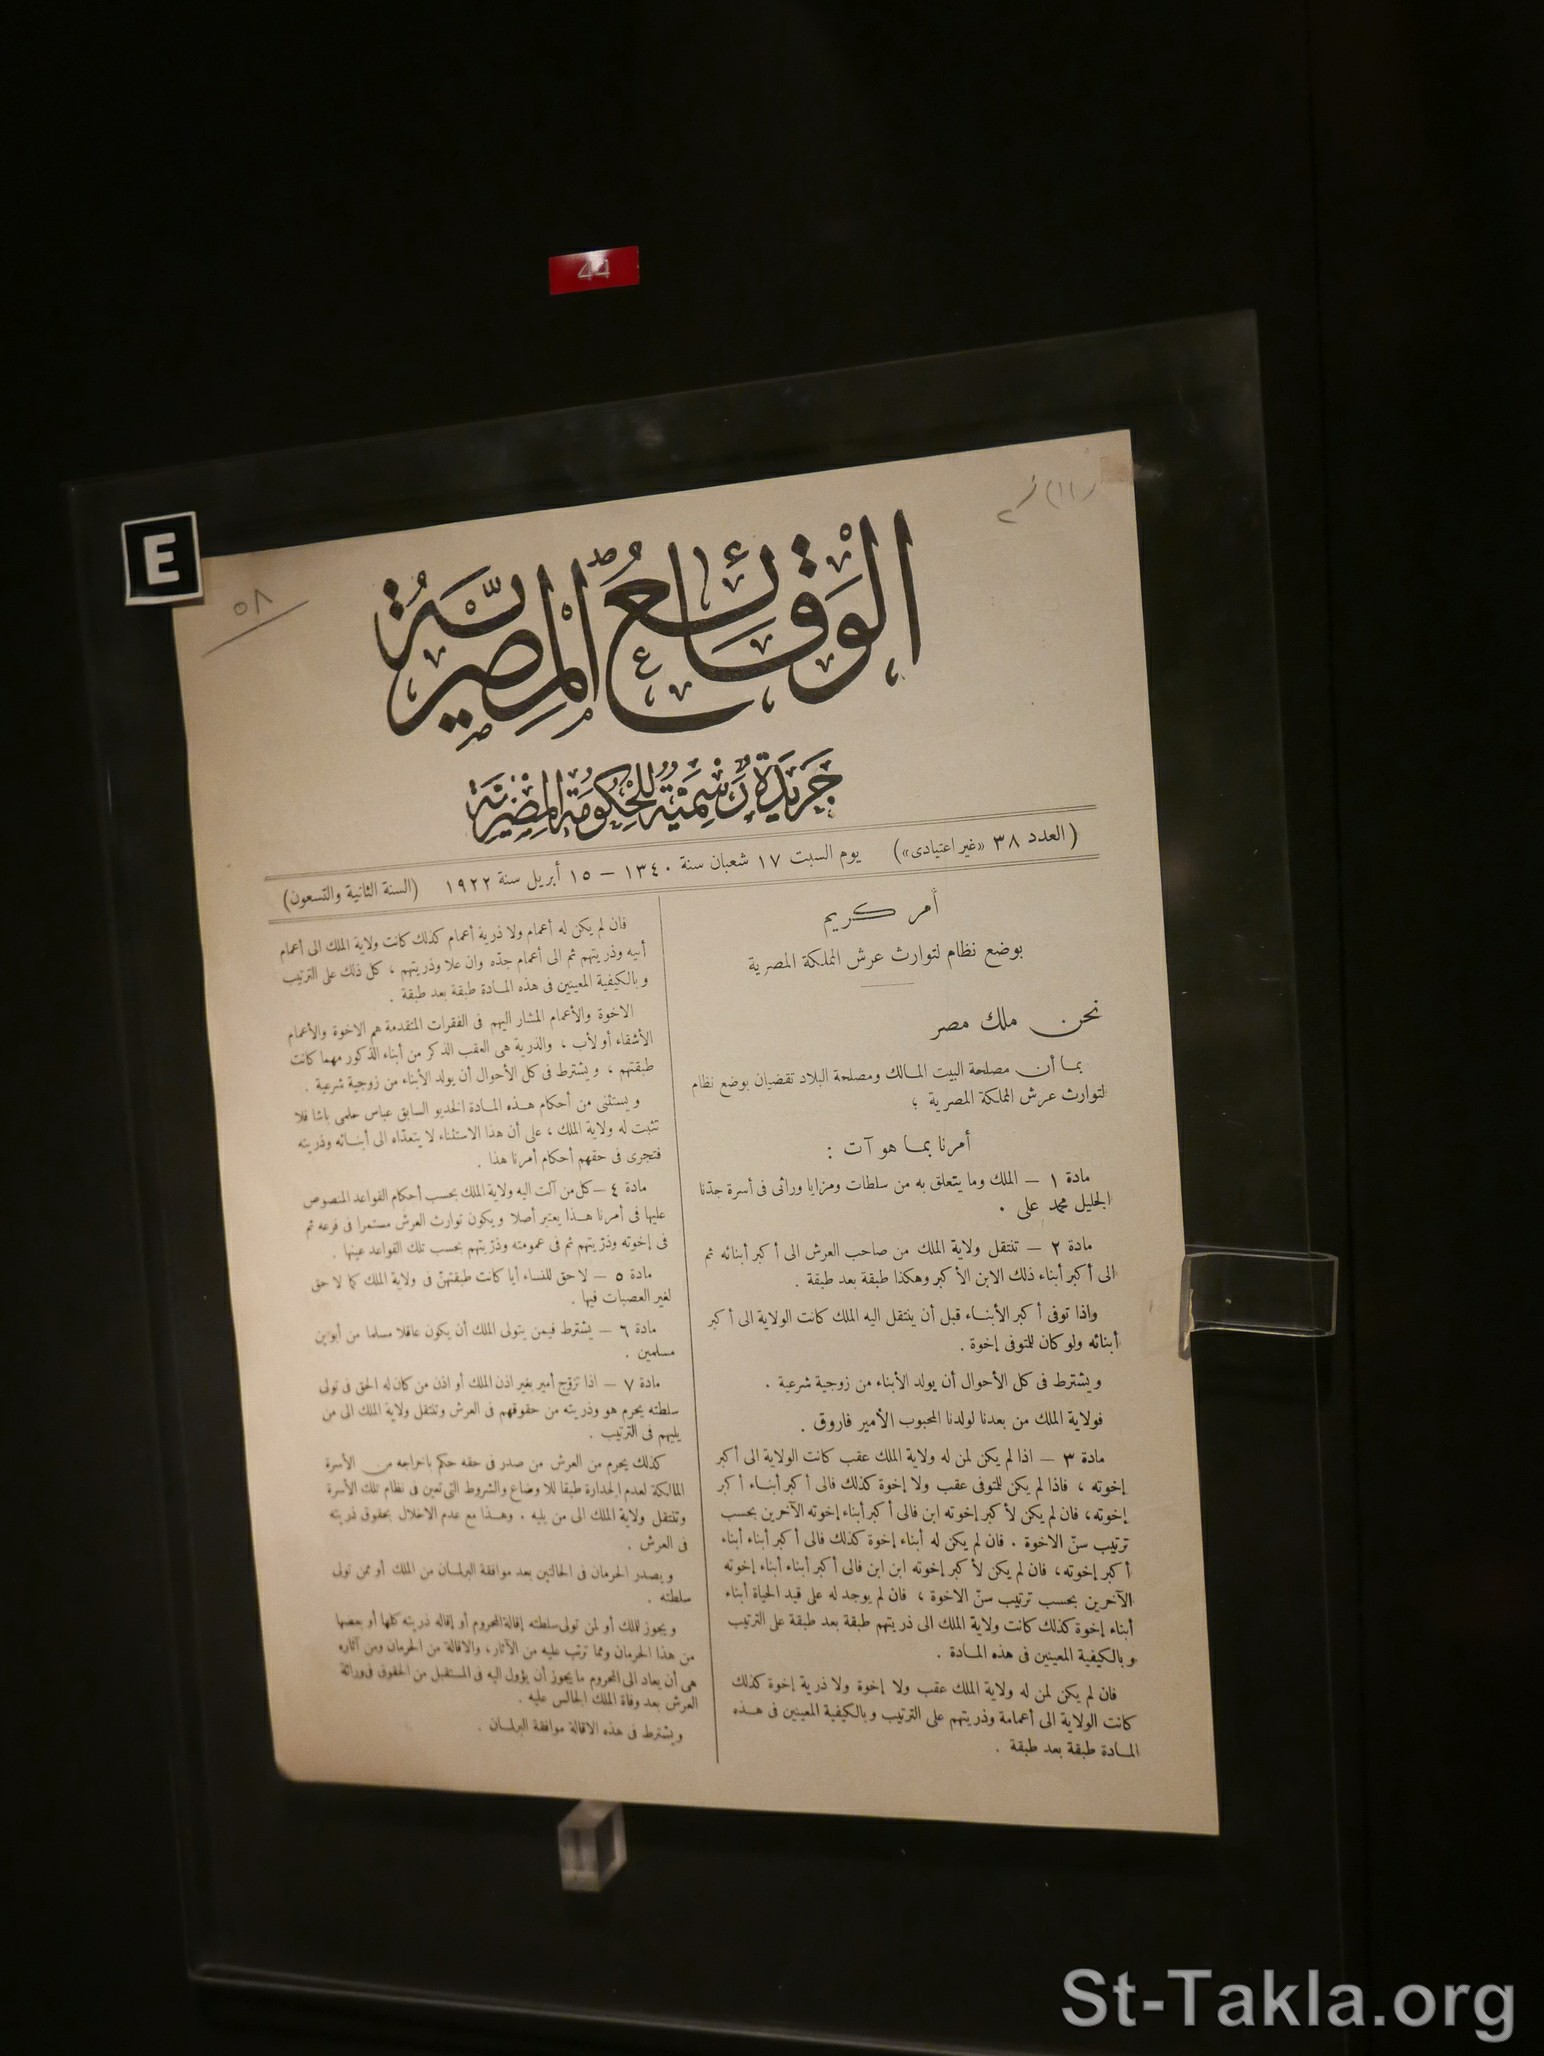 44
E
٥٨
الوقائع المصرية
جريدة رسمية للحكومة المصرية
(العدد ٣٨ «غير اعتيادى») يوم السبت ١٧ شعبان سنة ١٣٤٠ – ١٥ أبريل سنة ١٩٢٢ (السنة الثانية والتسعون)
أمر كريم
بوضع نظام لتوارث عرش المملكة المصرية
نحن ملك مصر
بما أن مصلحة البيت المالك ومصلحة البلاد تقضيان بوضع نظام
لتوارث عرش المملكة المصرية ؛
أمرنا بما هو آت :
مادة ١ – الملك وما يتعلق به من سلطات ومزايا وراثى فى أسرة جدّنا
الجليل محمد على .
مادة ٢ – تنتقل ولاية الملك من صاحب العرش الى أكبر أبنائه ثم
الى أكبر أبناء ذلك الابن الأكبر وهكذا طبقة بعد طبقة .
واذا توفى أكبر الأبناء قبل أن ينتقل اليه الملك كانت الولاية الى أكبر
أبنائه ولو كان للمتوفى إخوة .
ويشترط فى كل الأحوال أن يولد الأبناء من زوجية شرعية .
فولاية الملك من بعدنا لولدنا المحبوب الأمير فاروق .
مادة ٣ – اذا لم يكن لمن له ولاية الملك عقب كانت الولاية الى أكبر
إخوته ، فاذا لم يكن للمتوفى عقب ولا إخوة كذلك فالى أكبر أبناء أكبر
إخوته، فان لم يكن لأكبر إخوته ابن فالى أكبر أبناء إخوته الآخرين بحسب
ترتيب سنّ الاخوة . فان لم يكن له أبناء إخوة كذلك فالى أكبر أبناء أبناء
أكبر إخوته، فان لم يكن لأكبر إخوته ابن ابن فالى أكبر أبناء أبناء إخوته
الآخرين بحسب ترتيب سنّ الاخوة ، فان لم يوجد له على قيد الحياة أبناء
أبناء إخوة كذلك كانت ولاية الملك الى ذريتهم طبقة بعد طبقة على الترتيب
وبالكيفية المعينين فى هذه المادة .
فان لم يكن لمن له ولاية الملك عقب ولا إخوة ولا ذرية إخوة كذلك
كانت الولاية الى أعمامة وذريتهم على الترتيب وبالكيفية المعينين فى هذه
المادة طبقة بعد طبقة .
فان لم يكن له أعمام ولا ذرية أعمام كذلك كانت ولاية الملك الى أعمام
أبيه وذريتهم ثم الى أعمام جدّه وان علا وذريتهم ، كل ذلك على الترتيب
وبالكيفية المعينين فى هذه المادة طبقة بعد طبقة .
الاخوة والأعمام المشار اليهم فى الفقرات المتقدمة هم الاخوة والأعمام
الأشقاء أو لأب ، والذرية هى العقب الذكر من أبناء الذكور مهما كانت
طبقتهم ، ويشترط فى كل الأحوال أن يولد الأبناء من زوجية شرعية .
ويستثنى من أحكام هذه المادة الخديو السابق عباس حلمى باشا فلا
تثبت له ولاية الملك ، على أن هذا الاستثناء لا يتعدّاه الى أبنائه وذريته
فتجرى فى حقهم أحكام أمرنا هذا .
مادة ٤ – كل من آلت اليه ولاية الملك بحسب أحكام القواعد المنصوص
عليها فى أمرنا هذا يعتبر أصلا ويكون توارث العرش مستمرا فى فرعه ثم
فى إخوته وذرّيتهم ثم فى عمومته وذرّيتهم بحسب تلك القواعد عينها .
مادة ٥ – لا حق للنساء أيا كانت طبقتهنّ فى ولاية الملك كما لا حق
لغير العصبات فيها .
مادة ٦ – يشترط فيمن يتولى الملك أن يكون عاقلا مسلما من أبوين
مسلمين .
مادة ٧ – اذا تزوّج أمير بغير اذن الملك أو اذن من كان له الحق فى تولى
سلطته يحرم هو وذريته من حقوقهم فى العرش وتنتقل ولاية الملك الى من
يليهم فى الترتيب .
كذلك يحرم من العرش من صدر فى حقه حكم باخراجه من الأسرة
المالكة لعدم الجدارة طبقا للأوضاع والشروط التى تعين فى نظام تلك الأسرة
وتنتقل ولاية الملك الى من يليه . وهذا مع عدم الاخلال بحقوق ذريته
فى العرش .
ويصدر الحرمان فى الحالتين بعد موافقة البرلمان من الملك أو ممن تولى
سلطته .
ويجوز للملك أو لمن تولى سلطته إقالة المحروم أو إقاله ذريته كلها أو بعضها
من هذا الحرمان ومما ترتب عليه من الآثار، والاقالة من الحرمان ومن آثاره
هى أن يعاد الى المحروم ما يجوز أن يؤول اليه فى المستقبل من الحقوق فى وراثة
العرش بعد وفاة الملك الجالس عليه .
ويشترط فى هذه الاقالة موافقة البرلمان .
St-Takla.org